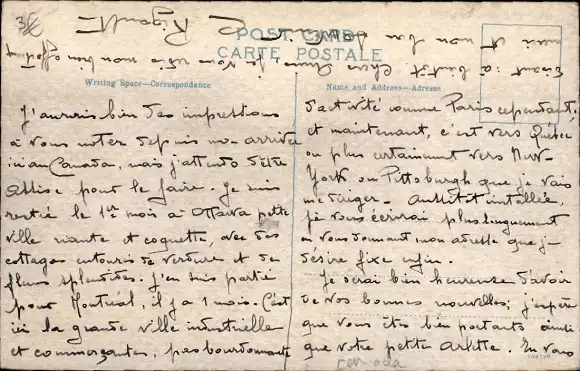 POST CARD
CARTE POSTALE
Writing Space—Correspondence
Name and Address—Adresse
J'aurais bien des impressions
à vous noter depuis mon arrivée
ici au Canada, mais j'attends d'être
assise pour le faire. Je suis
restée le 1er mois à Ottawa petite
ville riante et coquette, avec des
cottages entourés de verdure et de
fleurs splendides. J'en suis partie
pour Montréal, il y a 1 mois. C'est
ici la grande ville industrielle
et commerçante, pas bourdonnante
d'activité comme Paris cependant,
et maintenant, c'est vers Québec
ou plus certainement vers New-
York ou Pittsburgh que je vais
me diriger. Aussitôt installée,
je vous écrirai plus longuement
en vous donnant mon adresse que je
désire fixe enfin.
Je serai bien heureuse d'avoir
de vos bonnes nouvelles; j'espère
que vous êtes bien portants ainsi
que votre petite Arlette. En vous
disant à bientôt Chers Amis, je vous
mon bon
Rigault
Canada